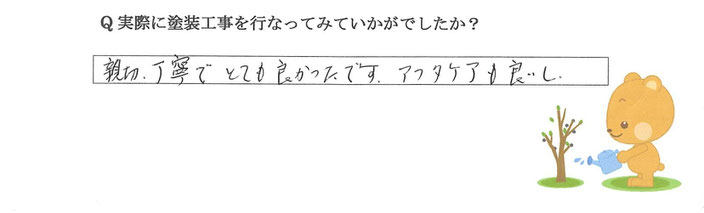 Q 実際に塗装工事を行なってみていかがでしたか？
親切、丁寧で とても良かったです、アフタケアも良いし、